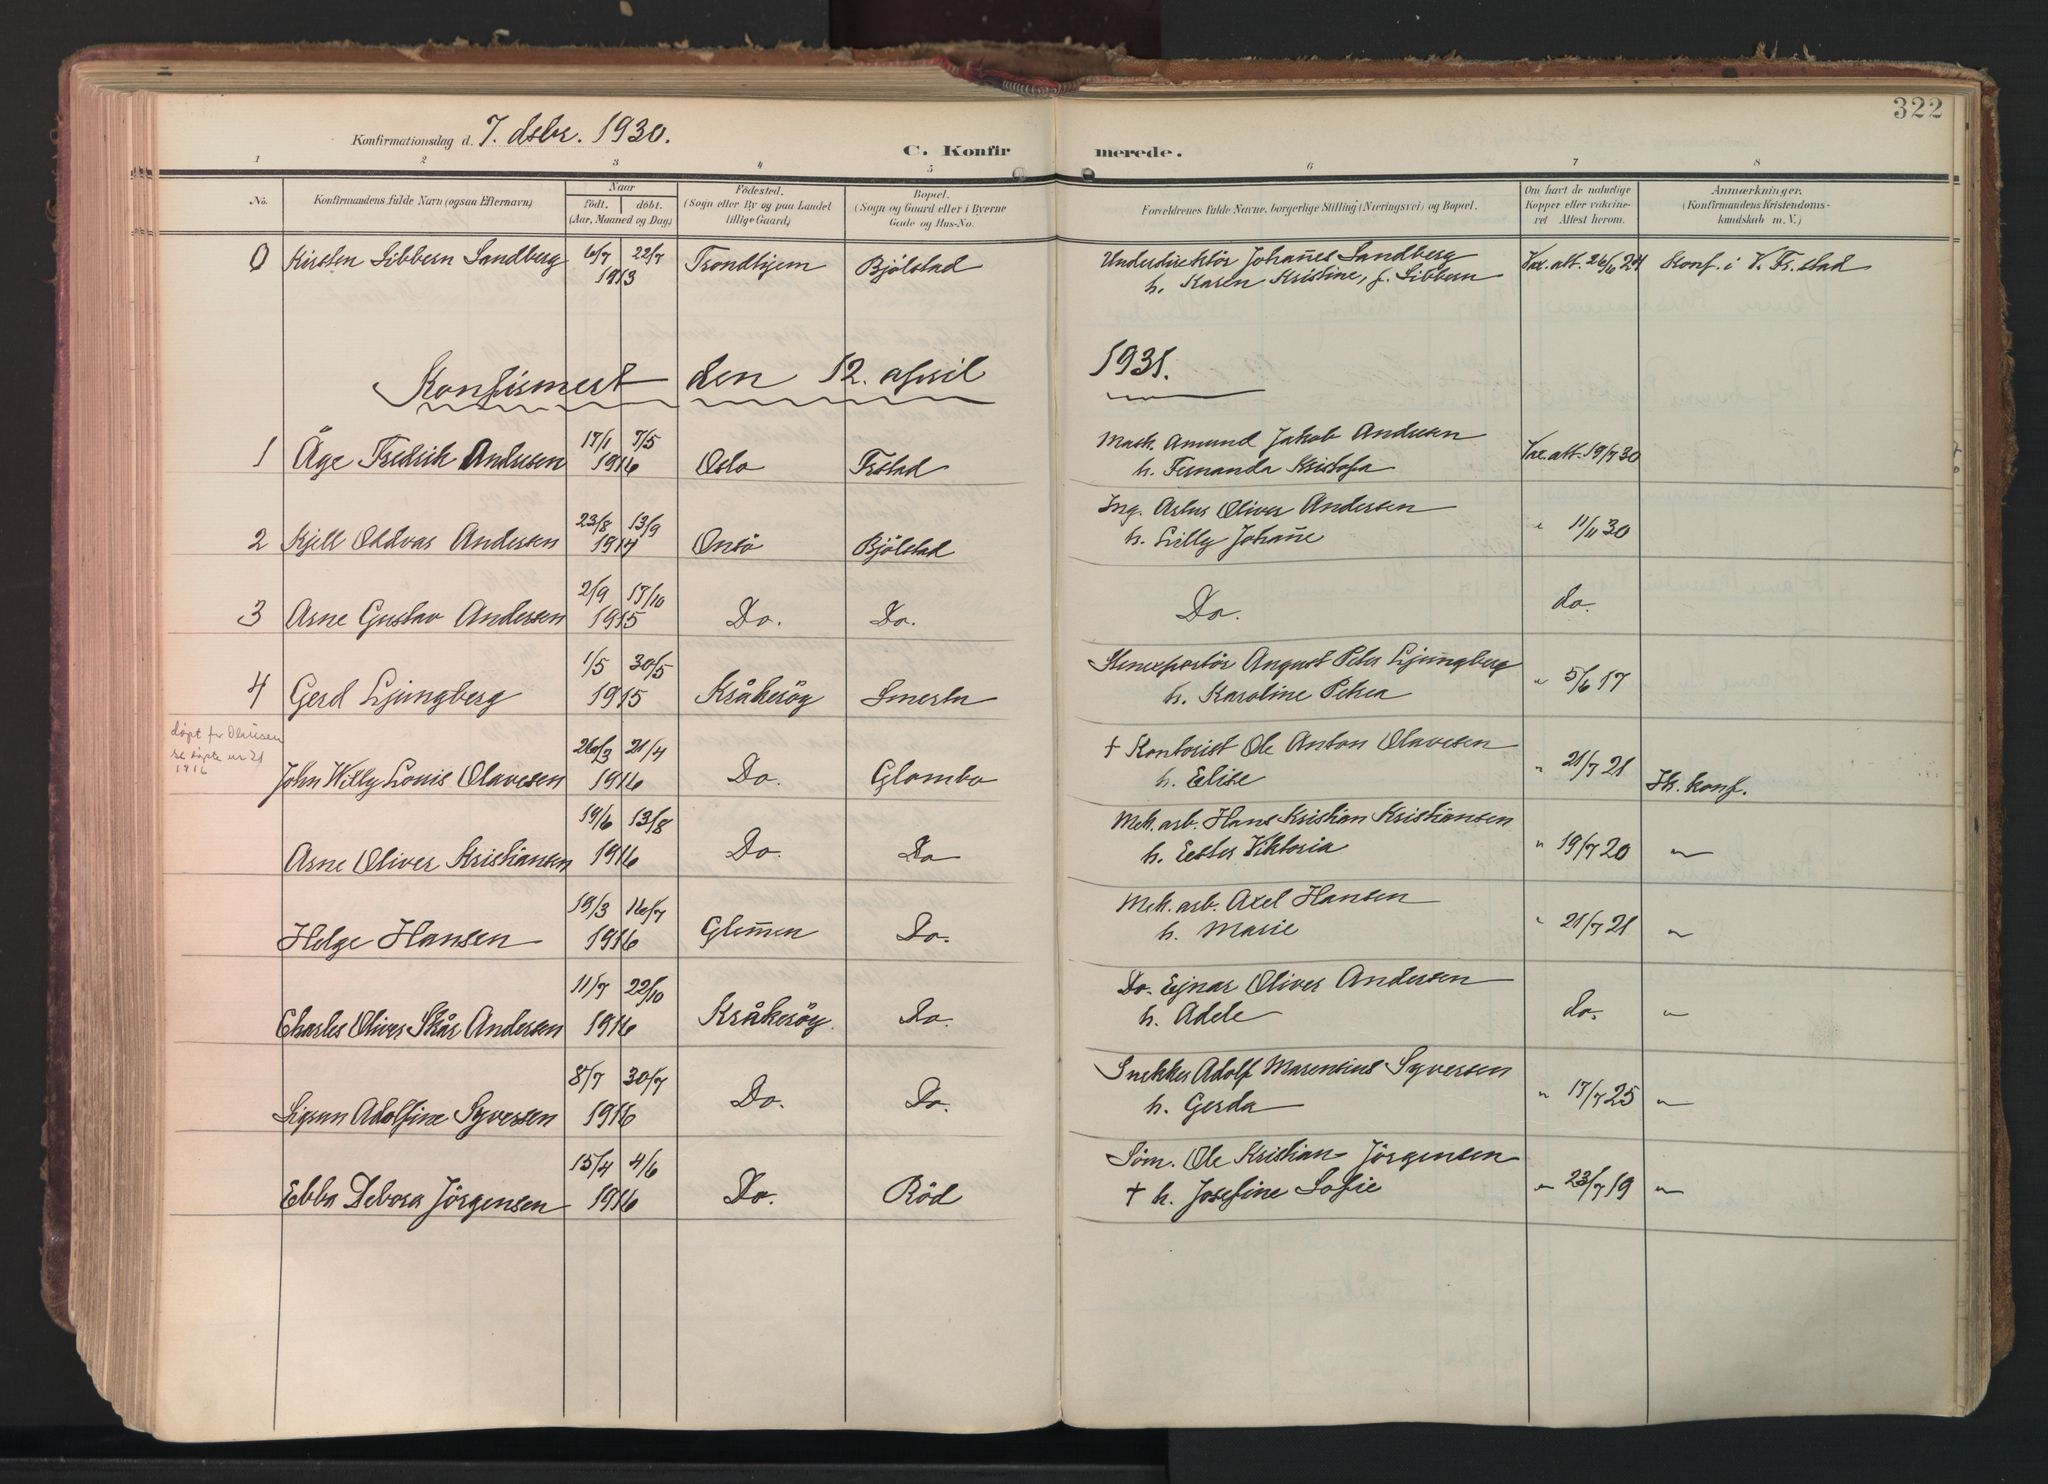 322
Konfirmationsdag d. 7. dsbr. 1930.
C. Konfirmerede.
1 2 3 4 5 6 7 8
No. Konfirmandens fulde Navn (ogsaa Efternavn) Naar født. døbt. (Aar, Maaned og Dag) Fødested. (Sogn eller By og paa Landet tillige Gaard) Bopæl. (Sogn og Gaard eller i Byerne Gade og Hus-No. Forældrenes fulde Navne, borgerlige Stilling (Næringsvei) og Bopæl. Om havt de naturlige Kopper eller vaccineret Attest herom. Anmærkninger. (Konfirmandens Kristendomskundskab m. V.)
0 Kirsten Sibbern Sandberg 6/7 22/7 1913 Trondhjem Bjölstad Underdirektör Johannes Sandberg Vax. att. 26/6 24 Konf. i V. Fr.stad
h. Karen Kristine, f. Sibbern
Konfirmert den 12. april 1931.
1 Åge Fredrik Andersen 17/1 7/5 1916 Oslo Frstad Mask. Amund Jakob Andersen Vax. att. 19/7 30
h. Fernanda Kristofa
2 Kjell Oddvar Andersen 23/8 13/9 1917 Onsö Bjölstad Ing. Artur Oliver Andersen " 11/11 30
h. Lilly Johanne
3 Arne Gustav Andersen 2/9 17/10 1915 Do. Do. Do. do.
4 Gerd Ljungberg 1/5 30/5 1915 Kråkeröy Smertu Stenexportör August Peter Ljungberg " 5/6 17
h. Karoline Petrea
döpt for Olausen
se döpte nr 21
1916
John Willy Louis Olavesen 26/3 21/4 1916 Do. Glombo † Kontorist Ole Anton Olavesen " 21/7 21 Ik. konf.
h. Elise
Arne Oliver Kristiansen 19/6 13/8 1916 Do. Do Mek. arb. Hans Kristian Kristiansen " 19/7 20 "
h. Ester Viktoria
Helge Hansen 19/3 16/7 1916 Glemmen Do. Mek. arb. Axel Hansen " 21/7 21 "
h. Marie
Charles Oliver Skår Andersen 11/7 22/10 1916 Kråkeröy. Do. Do. Ejnar Oliver Andersen do. "
h. Adele
Sigrun Adolfine Syversen 8/7 30/7 1916 Do. Do. Snekker Adolf Marensius Syversen " 17/7 25 "
h. Gerda
Ebba Debora Jörgensen 15/4 4/6 1916 Do. Röd Söm. Ole Kristian Jörgensen " 23/7 19 "
† h. Josefine Sofie